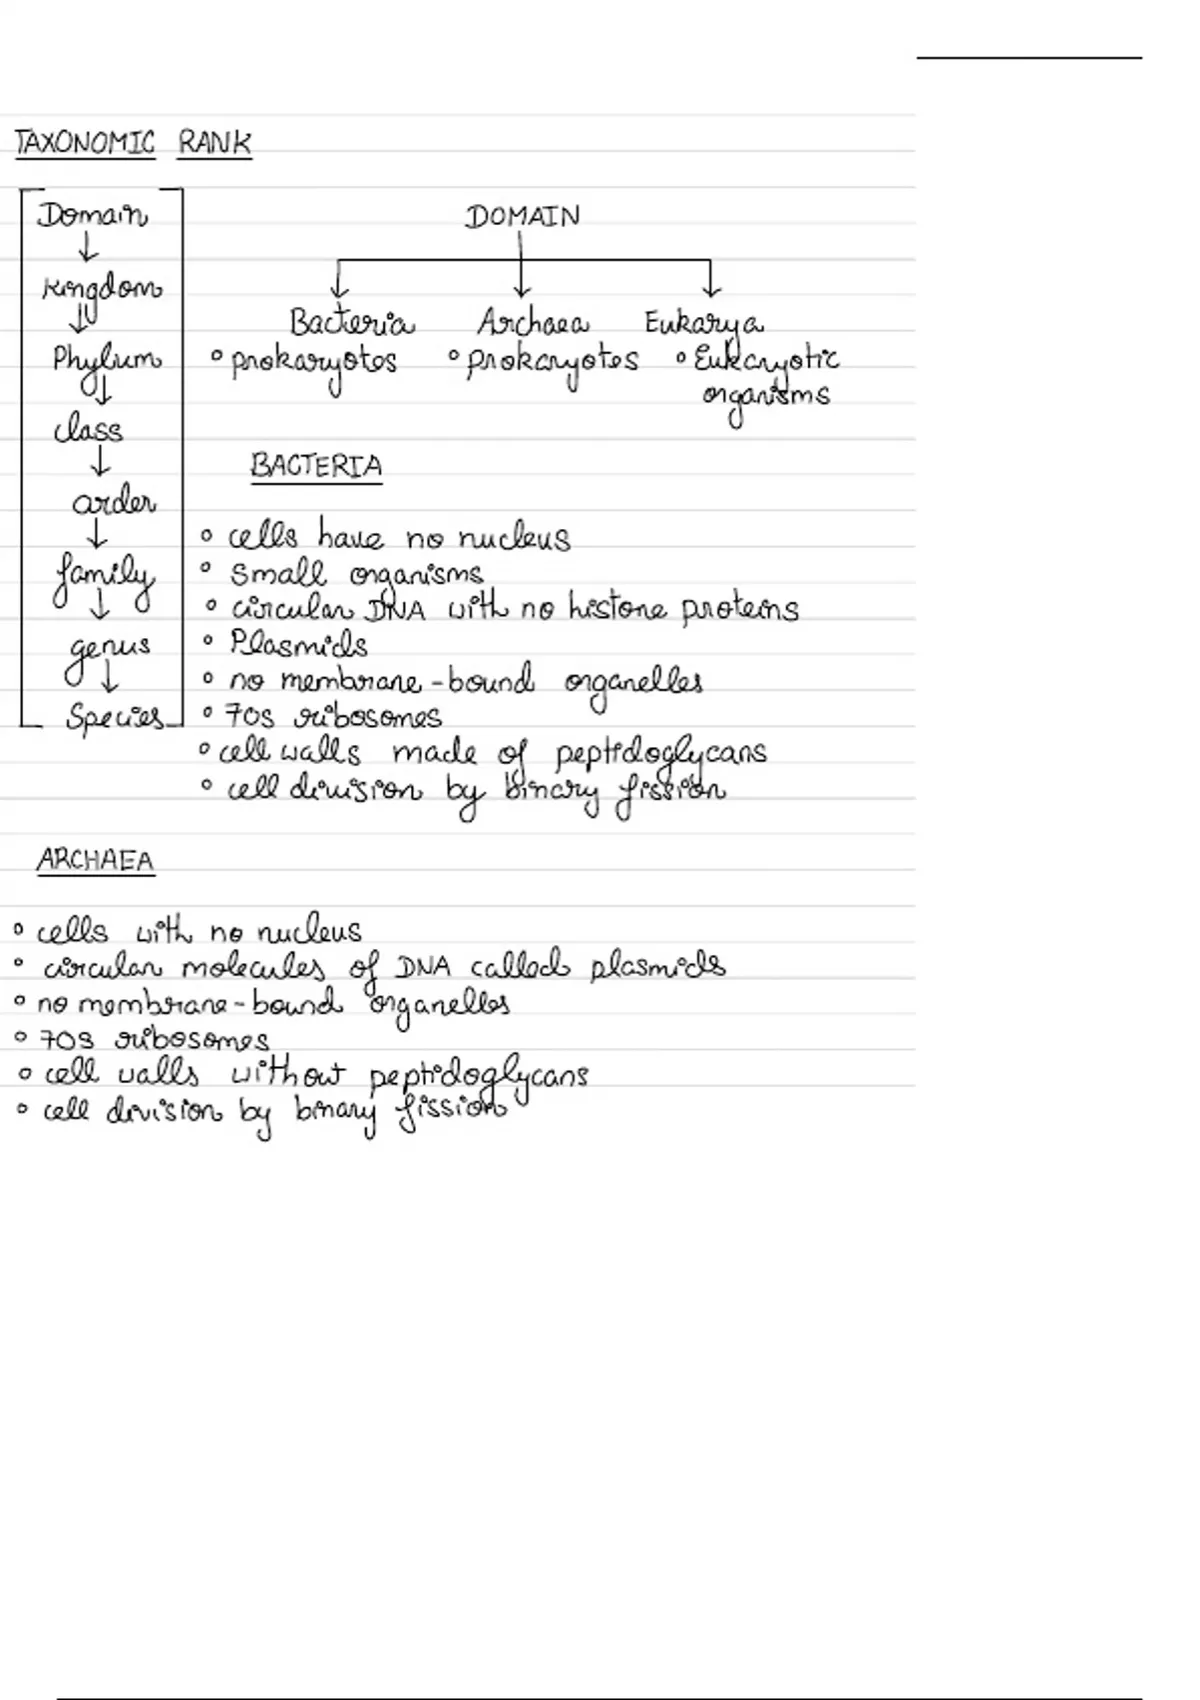 TAXONOMIC RANK
Domain
↓
Kingdom
↓
Phylum
↓
class
↓
order
↓
family
↓
genus
↓
Species
DOMAIN
Bacteria Archaea Eukarya
° prokaryotes ° prokaryotes ° Eukaryotic
organisms
BACTERIA
° cells have no nucleus
° small organisms
° circular DNA with no histone proteins
° Plasmids
° no membrane-bound organelles
° 70s ribosomes
° cell walls made of peptidoglycans
° cell division by binary fission
ARCHAEA
° cells with no nucleus
° circular molecules of DNA called plasmids
° no membrane-bound organelles
° 70s ribosomes
° cell walls without peptidoglycans
° cell division by binary fission